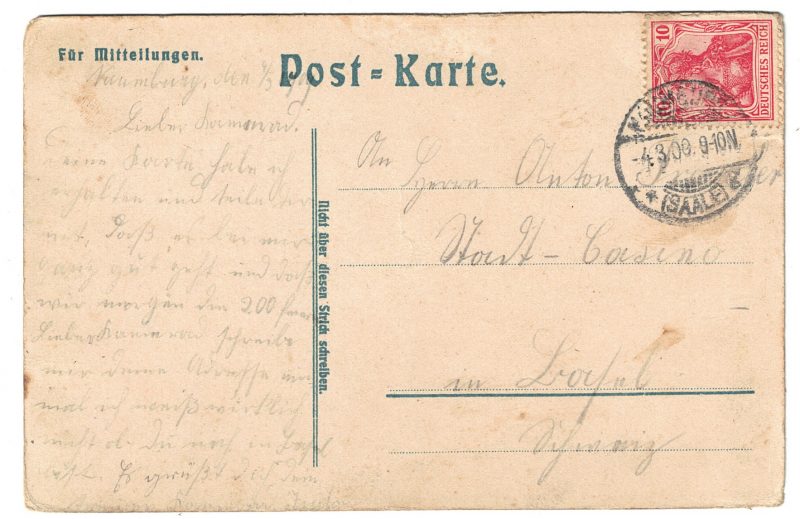 Für Mitteilungen.
Post-Karte.
10
DEUTSCHES REICH
NAUMBURG
-4.3.09. 9-10N.
* (SAALE) 2
Naumburg, den
Lieber Kamerad.
Deine Karte habe ich
erhalten und teile dir
mit, daß es bei mir
ganz gut geht und daß
wir morgen den 200
Lieber Kamerad schreibe
mir deine Adresse
mal ich weiß wirklich
nicht ob Du noch in Basel
bist. Es grüßt dich dein
Kamerad
Nicht über diesen Strich schreiben.
An
Herrn Anton
Stadt-Casino
in Basel
Schweiz